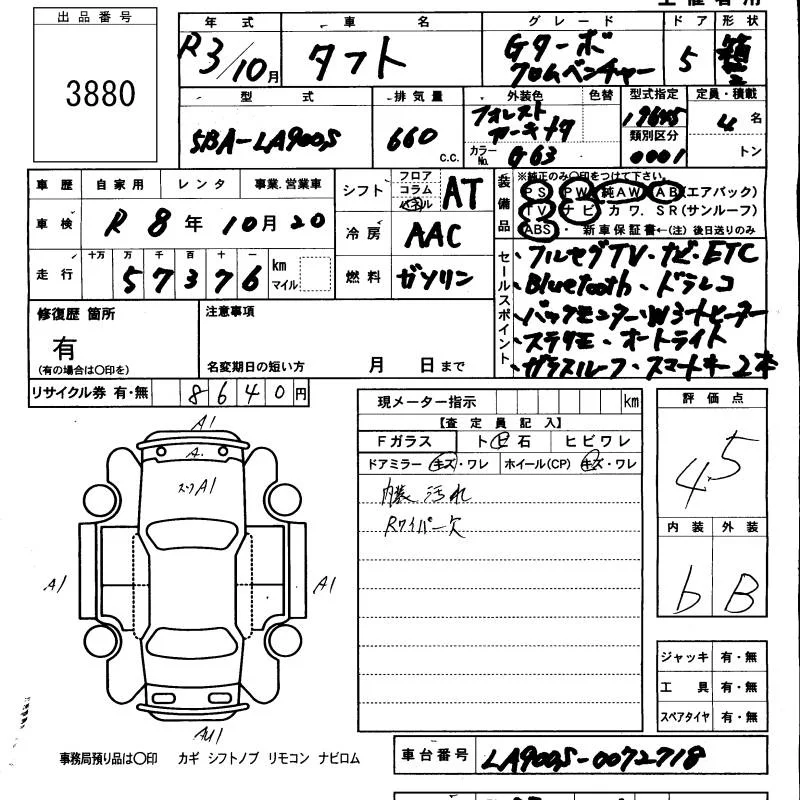 出品番号
3880
年式 車名 グレード ドア 形状
R3/10月 タフト Gターボ クロムベンチャー 5
型式 排気量 外装色 色替 型式指定 定員・積載
5BA-LA900S 660 c.c. フォレスト カーキメタ カラーNo. G63 19645 類別区分 0001 4名 トン
車歴 自家用 レンタ 事業.営業車 シフト フロア コラム AT
装備品 ※純正のみ〇印をつけて下さい。
PS PW 純AW AB(エアバック)
TV ナビ カワ. SR(サンルーフ)
ABS・ 新車保証書←(注) 後日送りのみ
車検 R 8年 10月 20 冷房 AAC
走行 十万 万 千 百 十 一 57376 km マイル 燃料 ガソリン
セールスポイント
・フルセグTV・ナビ・ETC
・Bluetooth・ドラレコ
・バックモニター・Wシートヒーター
・ステリモ・オートライト
・ガラスルーフ・スマートキー2本
修復歴 箇所 注意事項
有
(有の場合は〇印を) 名変期日の短い方 月 日まで
リサイクル券 有・無 8640円
現メーター指示 km
【査定員記入】
Fガラス ト ビ 石 ヒビワレ
ドアミラー キズ・ワレ ホイール(CP) キズ・ワレ
内装 汚れ
Rワイパー欠
評価点
4.5
内装 外装
b B
ジャッキ 有・無
工具 有・無
スペアタイヤ 有・無
A1
A.
A1
A1
A1
事務局預り品は〇印 カギ シフトノブ リモコン ナビロム
車台番号 LA900S-0072718